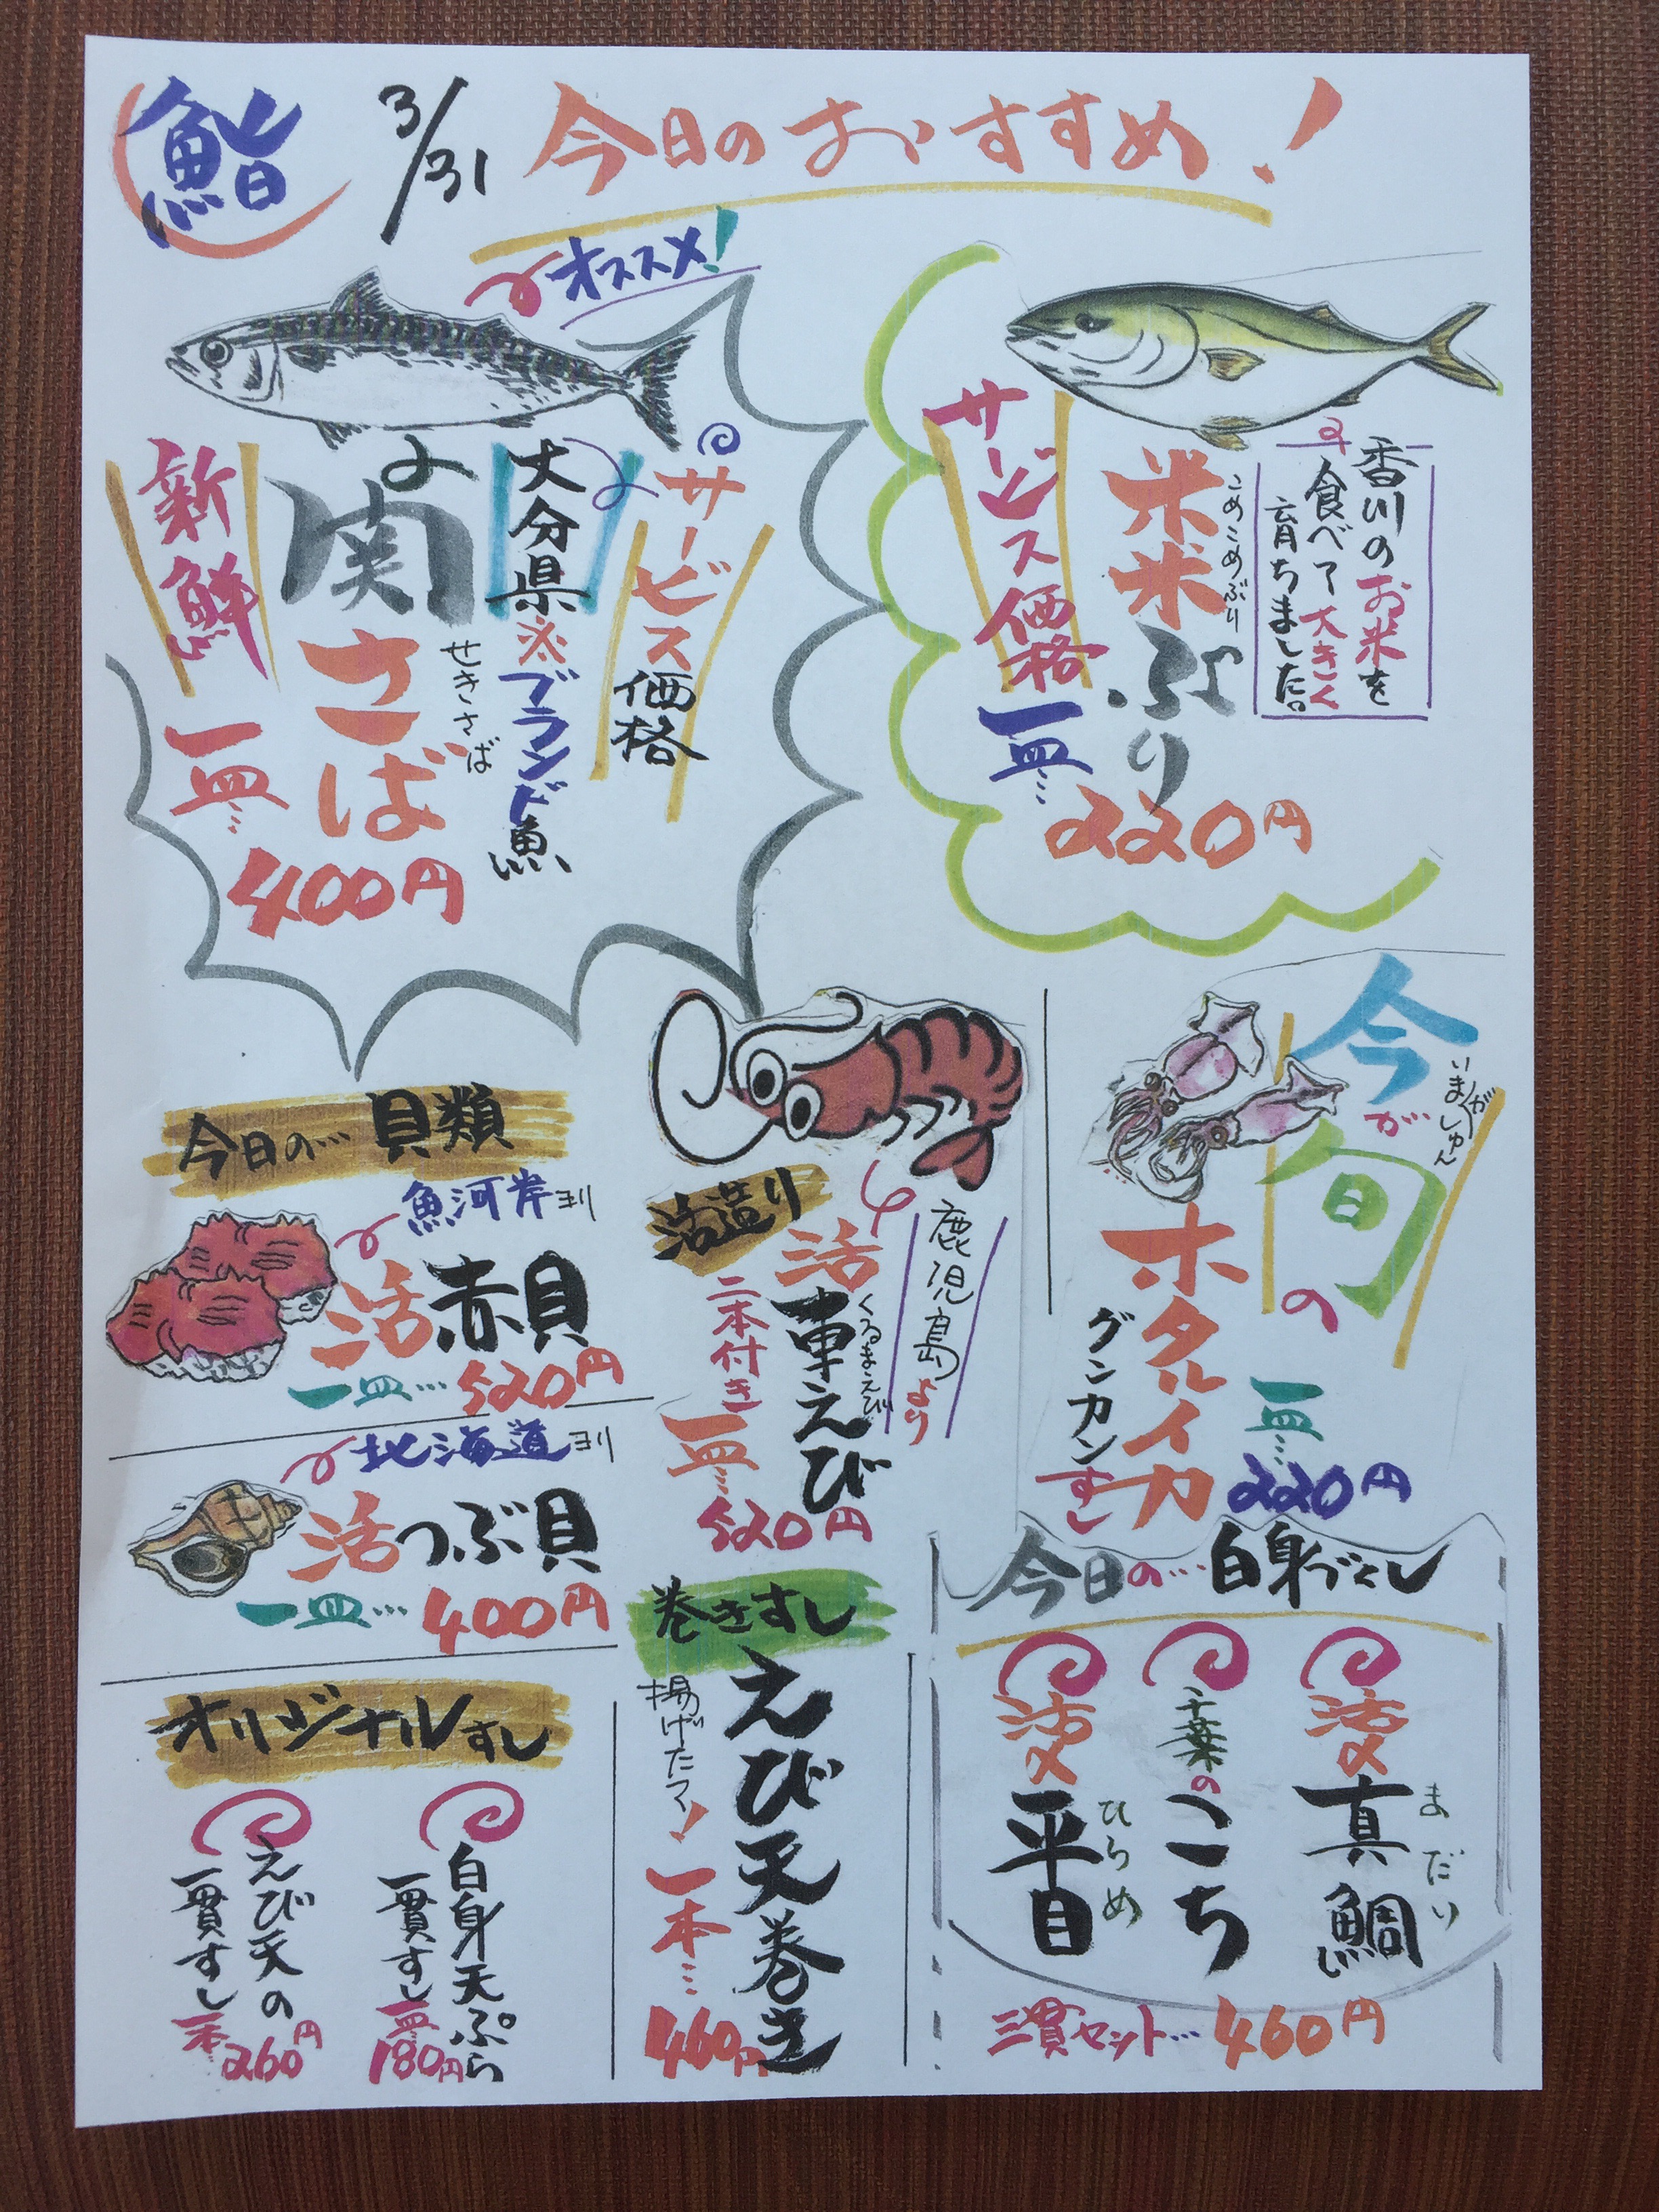 鮨
3/31
今日のおすすめ!
オススメ!
サービス価格
大分県
※ブランド魚
関さば
せきさば
新鮮
一皿…
400円
香川のお米を
食べて大きく
育ちました。
米米ぶり
こめこめぶり
サービス価格
一皿…
220円
今日の…貝類
魚河岸ヨリ
活赤貝
一皿…520円
北海道ヨリ
活つぶ貝
一皿…400円
活造り
鹿児島より
活車えび
くるまえび
二本付き
一皿…
520円
今が旬の
いまがしゅん
ホタルイカ
グンカンすし
一皿…
220円
オリジナルすし
白身天ぷら
一貫すし
一皿
180円
えび天の
一貫すし
一本…
260円
巻きすし
えび天巻き
揚げたて!
一本…
460円
今日の…白身づくし
活〆真鯛
まだい
千葉のこち
活〆平目
ひらめ
三貫セット…460円